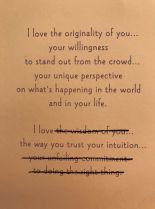 I love the originality of you...
your willingness
to stand out from the crowd...
your unique perspective
on what's happening in the world
and in your life.
I love the wisdom of you...
the way you trust your intuition...
your unfailing commitment
to doing the right thing.